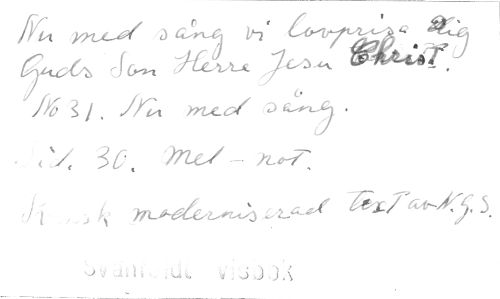 Nu med sång vi lovprisa Dig
Guds Son Herre Jesu Christ.
No 31. Nu med sång.
Sid. 30. Mel-not.
moderniserad text av N.G.S.
visbok